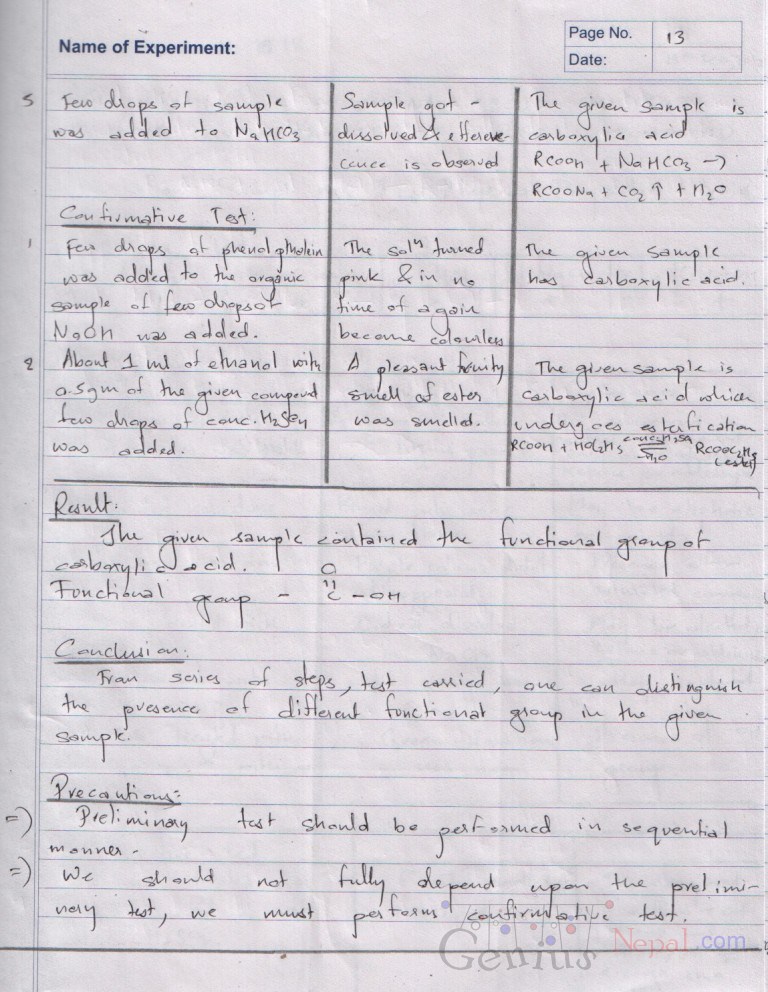 Name of Experiment:
Page No. 13
Date:
5 Few drops of sample
was added to NaHCO3
Sample got -
dissolved & efferve-
cence is observed
The given sample is
carboxylic acid
RCOOH + NaHCO3 →
RCOONa + CO2 ↑ + H2O
Confirmative Test:
1 Few drops of phenolpthalein
was added to the organic
sample of few drops of
NaOH was added.
The solⁿ turned
pink & in no
time of again
become colourless
The given sample
has carboxylic acid.
2 About 1 ml of ethanol with
0.5gm of the given compound
few drops of conc. H2SO4
was added.
A pleasant fruity
smell of ester
was smelled.
The given sample is
carboxylic acid which
undergoes estrification
RCOOH + HOC2H5 conc H2SO4 -H2O RCOOC2H5
(ester)
Result:
The given sample contained the functional group of
carboxylic acid.
O
Functional group - C - OH
Conclusion:
From series of steps, test carried, one can distinguish
the presence of different functional group in the given
sample.
Precautions:
=) Preliminary test should be performed in sequential
manner.
=) We should not fully depend upon the prelimi-
nary test, we must perform confirmative test.
Genius Nepal.com